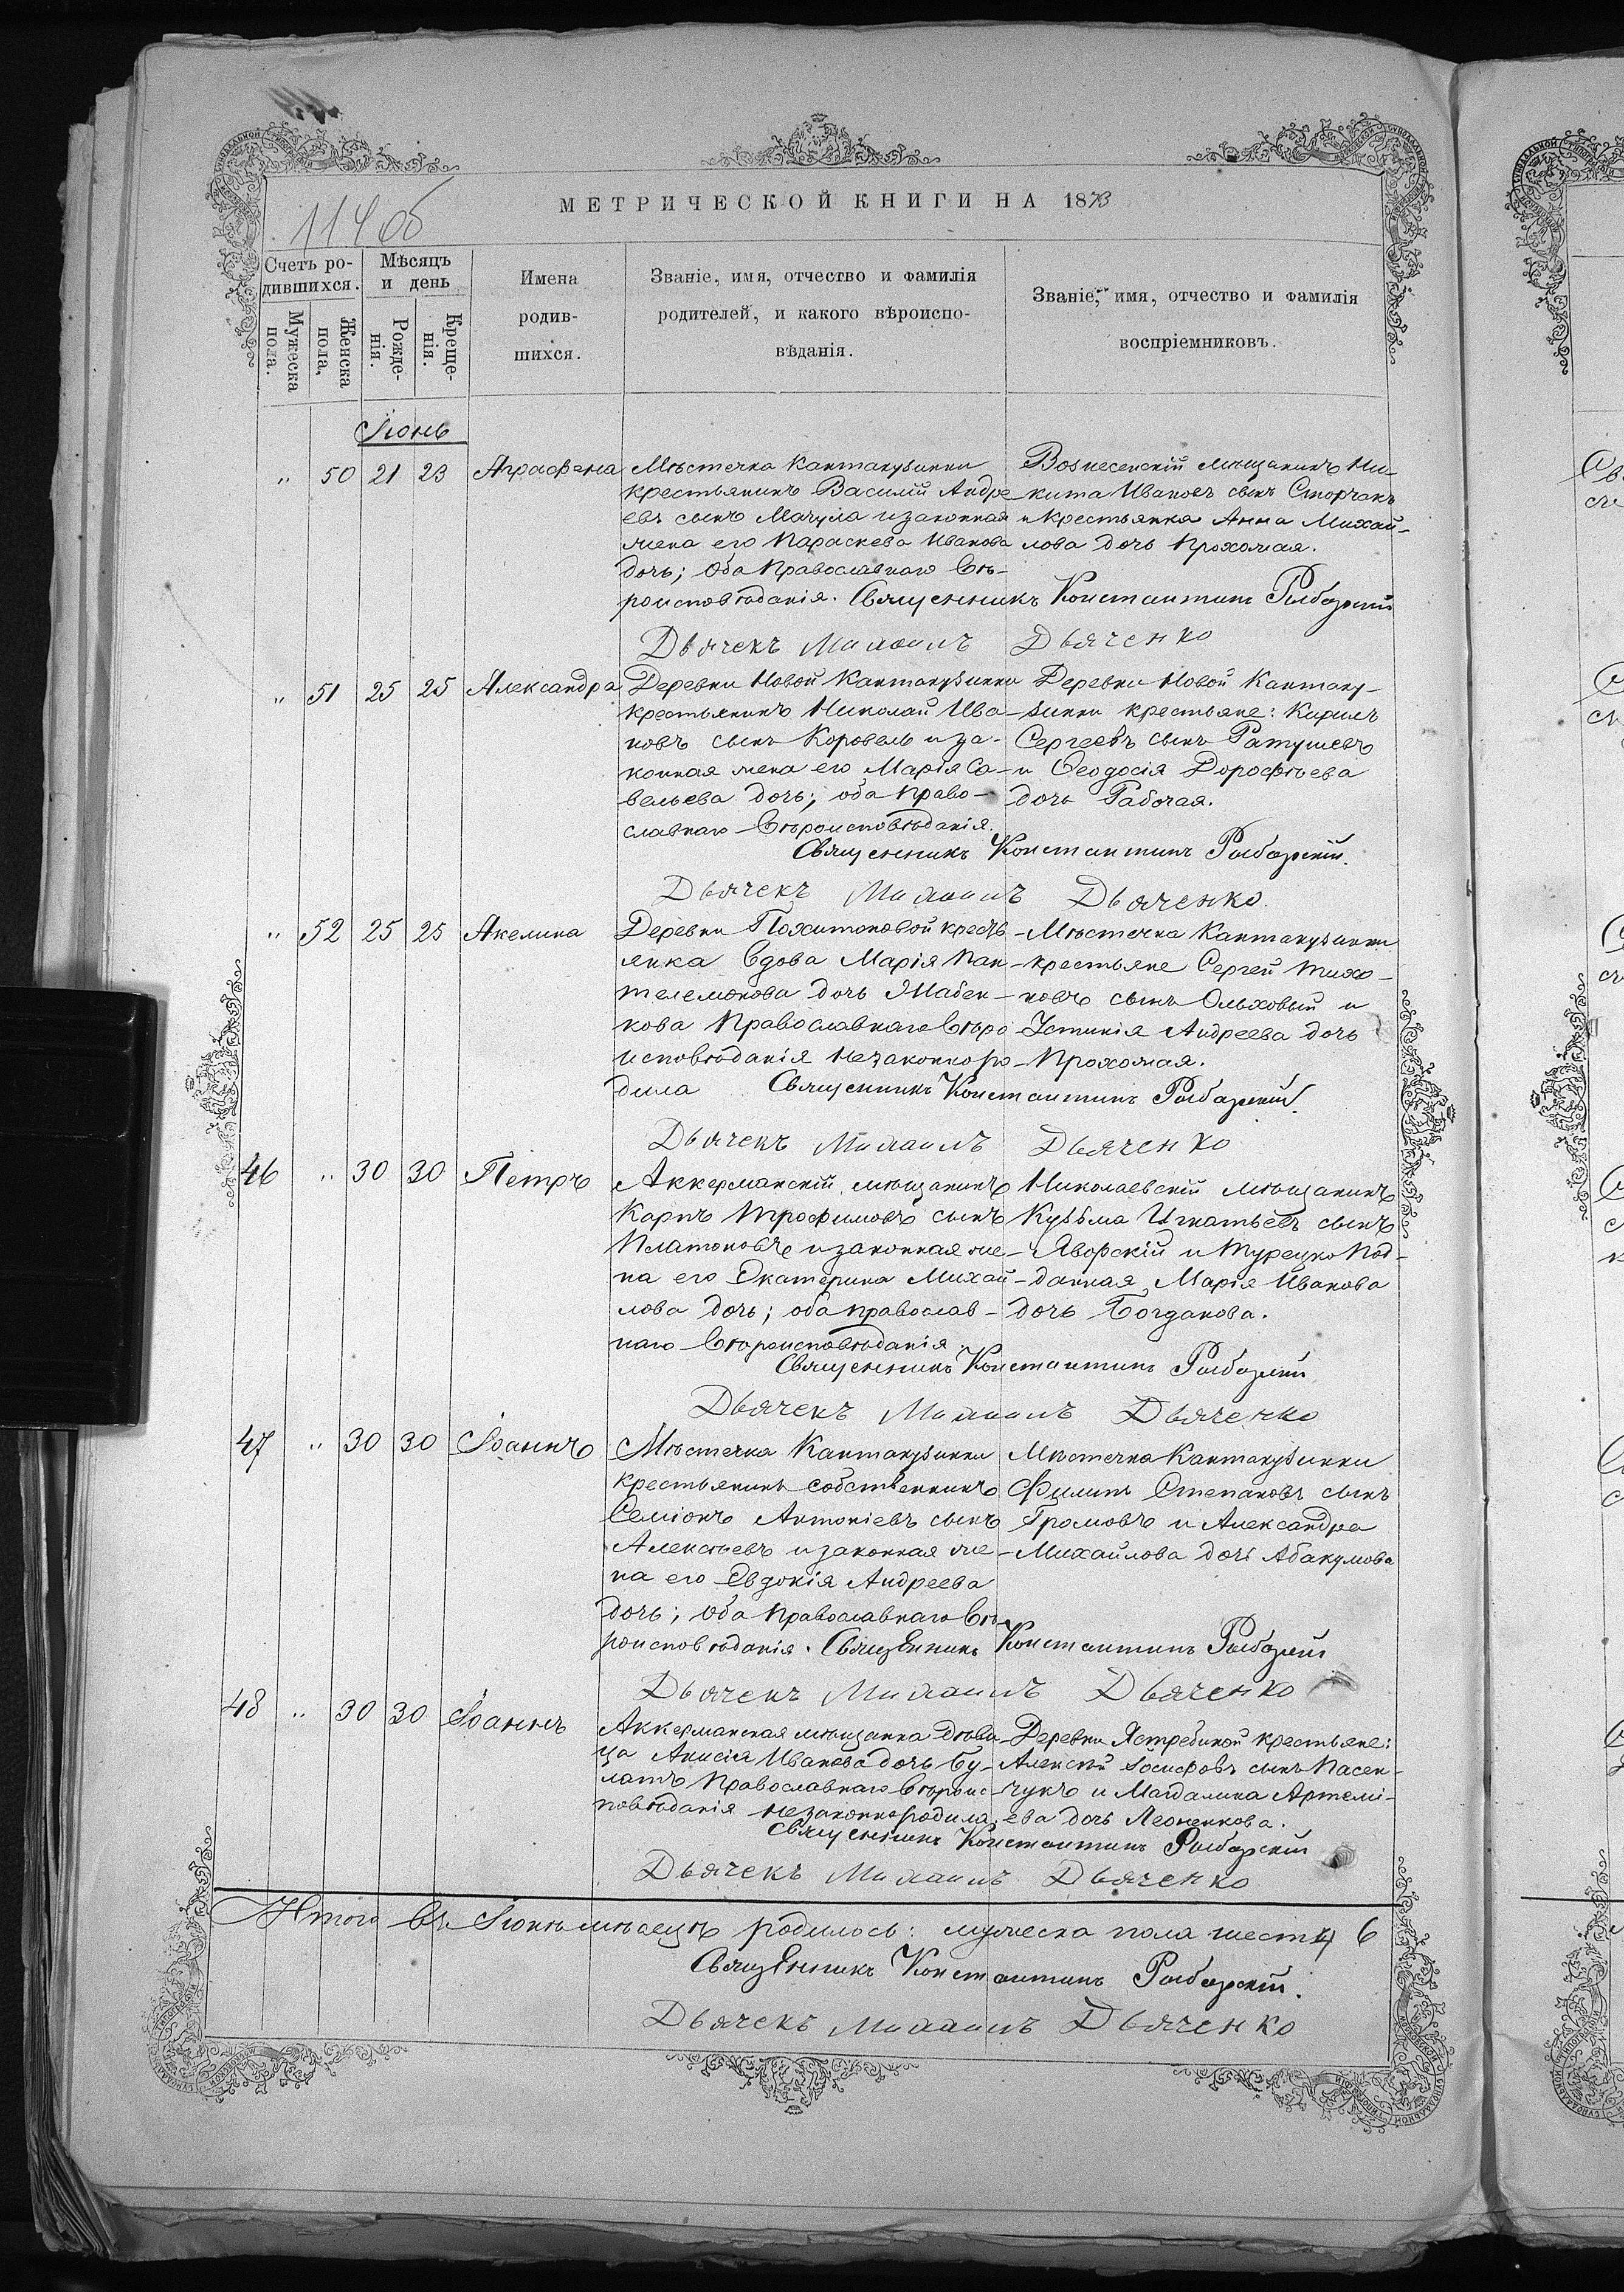 МЕТРИЧЕСКОЙ КНИГИ НА 1873
114 об
Счетъ ро-
дившихся.
Мужеска пола.
Женска пола,
Мѣсяцъ и день
Рожде-
нія.
Креще-
нія.
Имена
родив-
шихся.
Званіе, имя, отчество и фамилія
родителей, и какого вѣроиспо-
вѣданія.
Званіе, имя, отчество и фамилія
воспріемниковъ.
Іюнь
" 50 21 23 Аграфена
Мѣстечка Кантакузинки
крестьянинъ Василій Андре
евъ сынъ Мачула и законная
жена его Параскева Иванова
дочь; оба Православнаго Вѣ-
роисповѣданія.
Вознесенскій мѣщанинъ Ни-
кита Ивановъ сынъ Сторчакъ
и крестьянка Анна Михай-
лова дочь Прохожая.
Священникъ Константинъ
Дьячекъ Михаилъ Дьяченко
" 51 25 25 Александра
Деревни Новой Кантакузинки
крестьянинъ Николай Ива-
новъ сынъ Коровель и за-
конная жена его Марія Са-
вельева дочь; оба право-
славнаго Вѣроисповѣданія.
Деревни Новой Кантаку-
зинки крестьяне: Кирилъ
Сергеевъ сынъ Ратушевъ
и Ѳеодосія Дорофѣева
дочь Рабочая.
Священникъ Константинъ
Дьячекъ Михаилъ Дьяченко
" 52 25 25 Акелина
Деревни Похитоновой кресть-
янка Вдова Марія Пан-
телемонова дочь
кова Православнаго Вѣро
исповѣданія незаконно ро-
дила
Мѣстечка Кантакузинки
крестьяне Сергей Тихо-
новъ сынъ Ольховый и
Устинія Андреева дочь
Прохожая.
Священникъ Константинъ
Дьячекъ Михаилъ Дьяченко
46 " 30 30 Петръ
Аккерманскій мѣщанинъ
Карпъ Трофимовъ сынъ
Платоновъ и законная же-
на его Екатерина Михай-
лова дочь; оба православ-
наго Вѣроисповѣданія.
Николаевскій мѣщанинъ
Кузьма Игнатьевъ сынъ
Яворскій и Турецко Под-
данная Марія Иванова
дочь Богданова.
Священникъ Константинъ
Дьячекъ Михаилъ Дьяченко
47 " 30 30 Іоаннъ
Мѣстечка Кантакузинки
крестьянинъ собственникъ
Семіонъ Антоніевъ сынъ
Алексѣевъ и законная же-
на его Евдокія Андреева
дочь; оба Православнаго Вѣ-
роисповѣданія.
Мѣстечка Кантакузинки
Филипъ Степановъ сынъ
Громовъ и Александра
Михайлова дочь Абакумова
Священникъ Константинъ
Дьячекъ Михаилъ Дьяченко
48 " 30 30 Іоаннъ
Аккерманская мѣщанка дѣви-
ца Анисія Иванова дочь Бу-
латъ Православнаго Вѣроис-
повѣданія незаконно родила
Деревни Ястребиной крестьяне:
Алексѣй Іосифовъ сынъ Пасен-
чукъ и Магдалина Артемі-
ева дочь Леоненкова.
Священникъ Константинъ
Дьячекъ Михаилъ Дьяченко
Итого въ Іюнѣ мѣсяцѣ родилось: мужеска пола шесть 6
Священникъ Константинъ
Дьячекъ Михаилъ Дьяченко